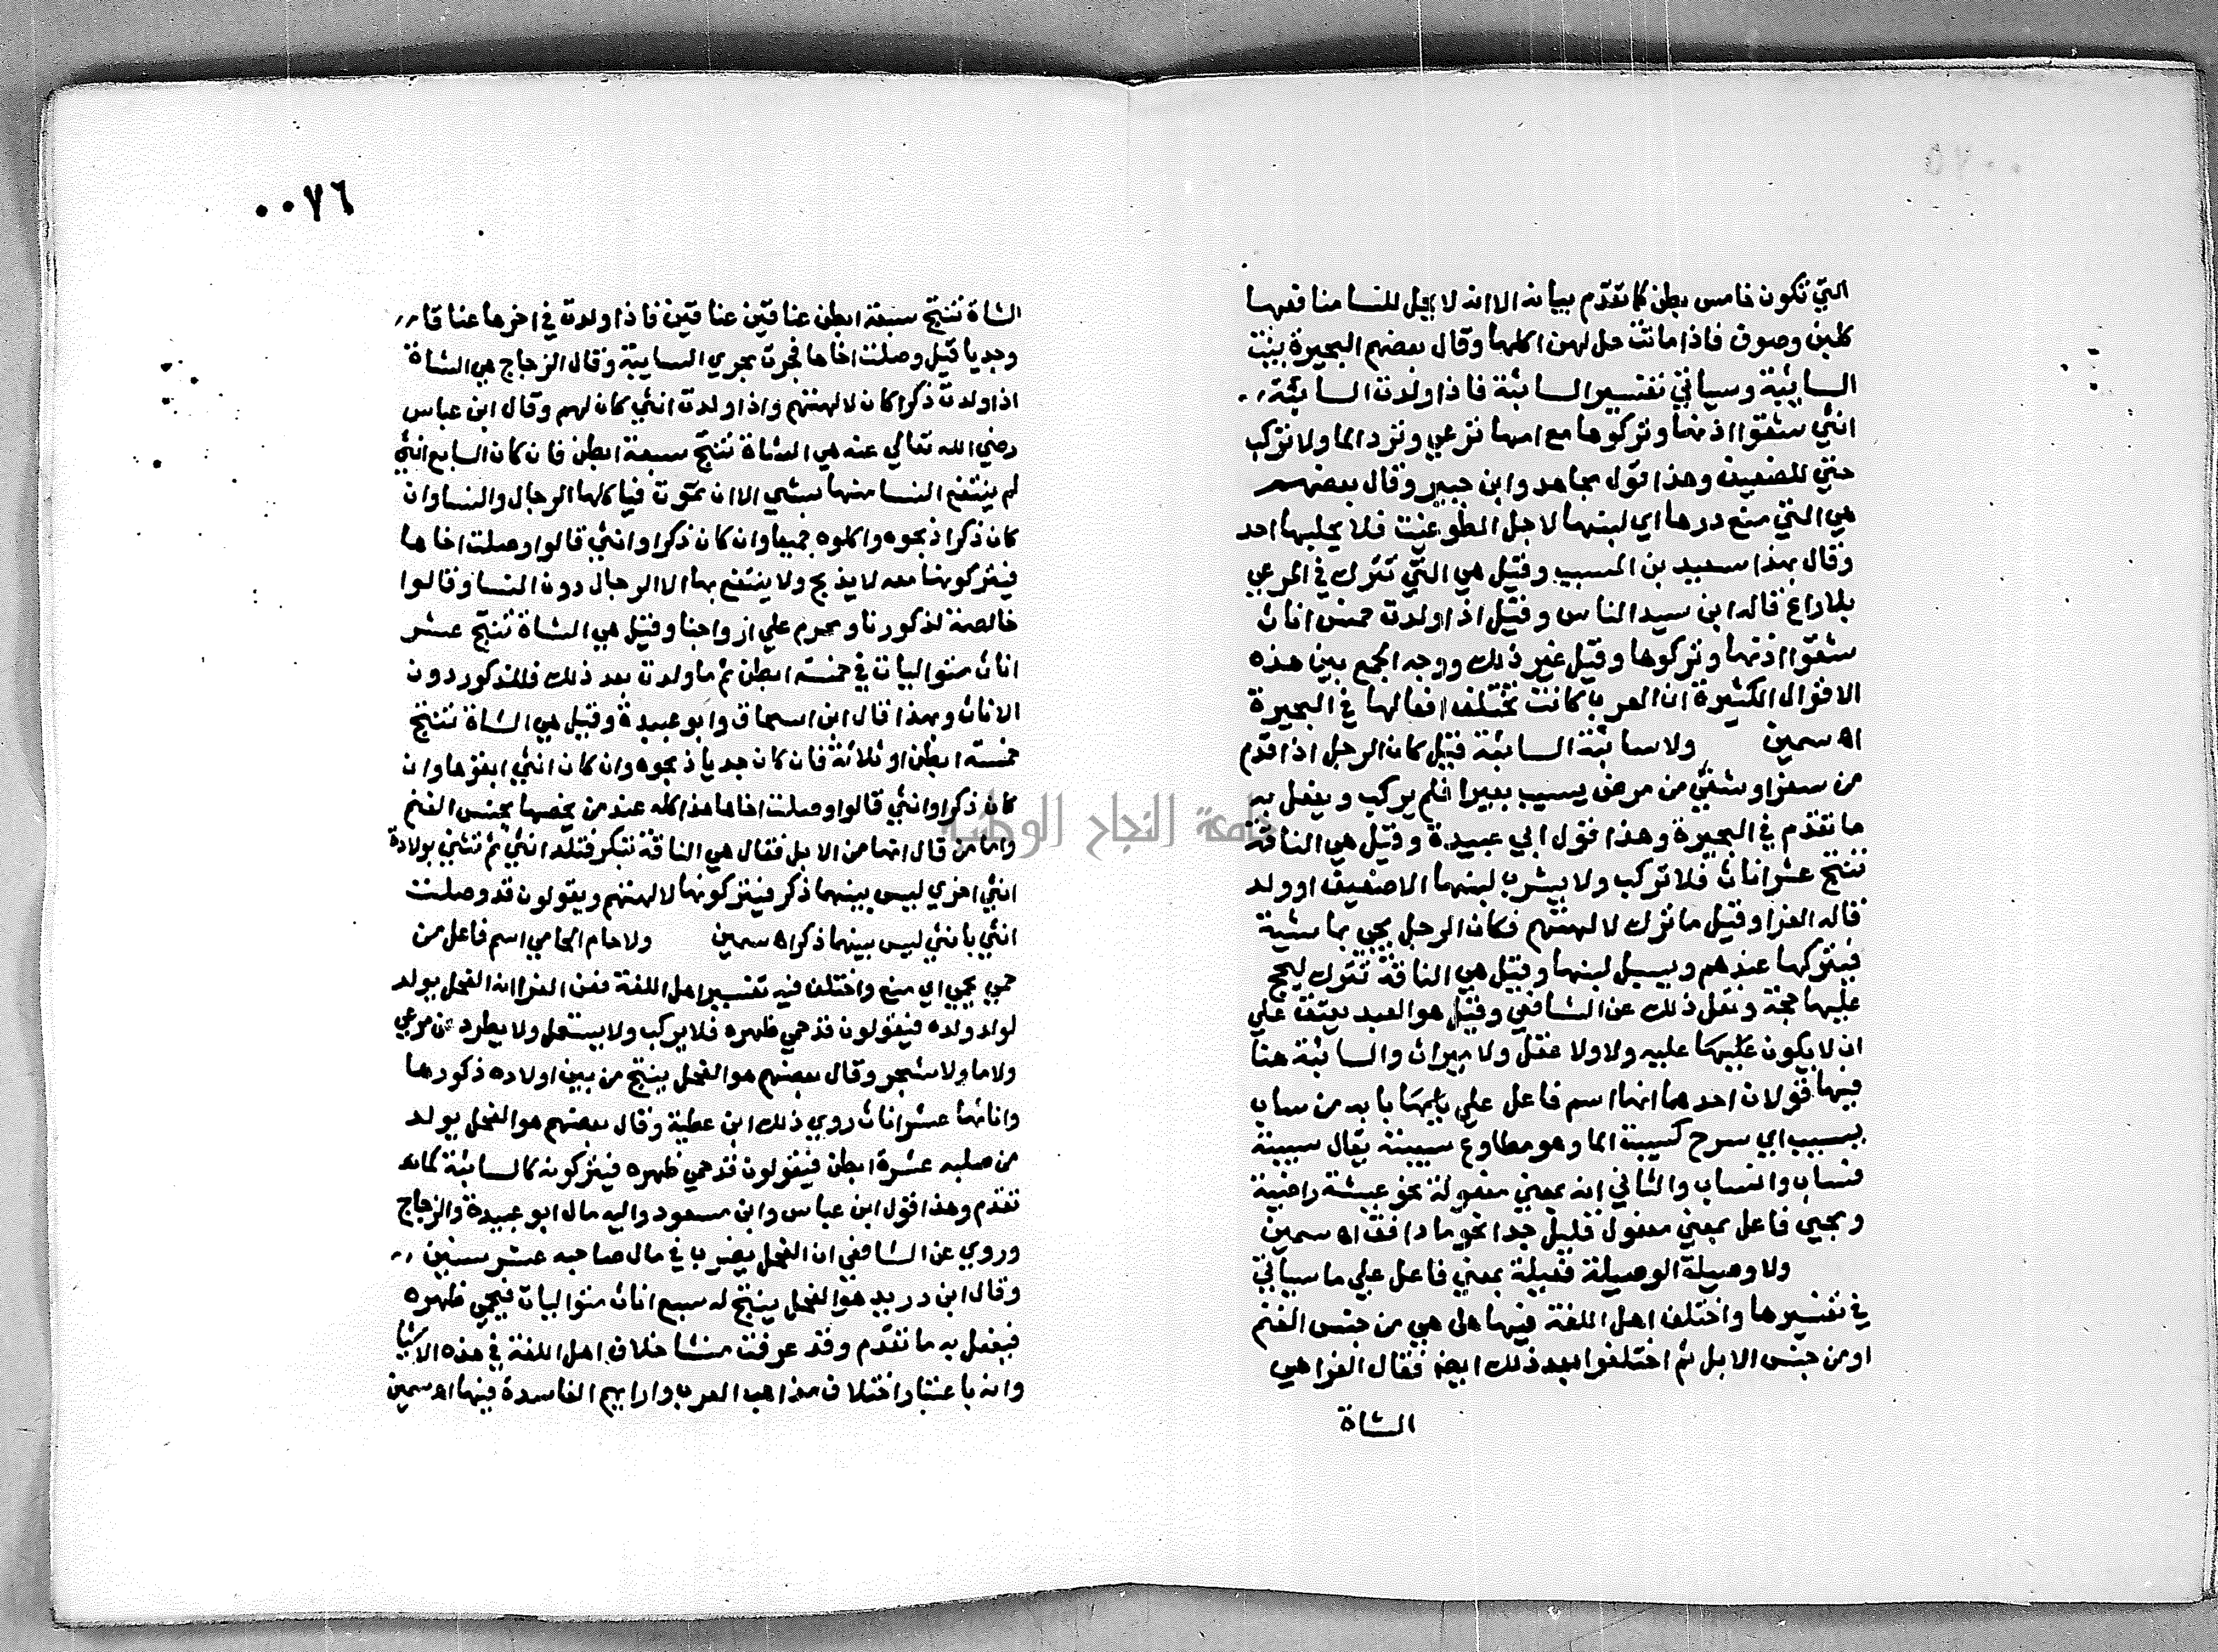 التي تكون خامس بطن كما تقدم بيانه الا انه لا يحل للنسا منافعها
كلبن وصوف فاذا ماتت حل لهن اكلها وقال بعضهم البحيرة بنت
السايبة وسياتي تفسير السائبة فاذا ولدت السائبة
انثي شقوا اذنها وتركوها مع امها ترعي وترد الما ولا تركب
حتي للضعيف وهذا قول مجاهد وابن جبير وقال بعضهم
هي التي منع درها اي لبنها لاجل الطواغيت فلا يحلبها احد
وقال بهذا سعيد بن المسيب وقيل هي التي تترك في المرعي
بلا راع قاله ابن سيد الناس وقيل اذا ولدت خمس اناث
شقوا اذنها وتركوها وقيل غير ذلك ووجه الجمع بين هذه
الاقوال الكثيرة ان العرب كانت تختلف افعالها في البحيرة
اه سمين ولا سائبة السائبة قيل كان الرجل اذا قدم
من سفر او شفي من مرض يسيب بعيرا فلم يركب ويفعل به
ما تقدم في البحيرة وهذا قول ابي عبيدة وقيل هي الناقة
تنتج عشر اناث فلا تركب ولا يشرب لبنها الا ضعيف او ولد
قاله الفرا وقيل ما ترك لالهتهم فكان الرجل يجي بماشية
فيتركها عندهم ويسبل لبنها وقيل هي الناقة تترك ليحج
عليها حجة ونقل ذلك عن الشافعي وقيل هو العبد يعتق علي
ان لا يكون عليه ولا ولا عقل ولا ميراث والسائبة هنا
فيها قولان احدهما انها اسم فاعل علي بابه من ساب
يسيب اي سرح كسيبة الما وهو مطاوع سيبته يقال سيبته
فساب وانساب والثاني انه بمعني مفعولة نحو عيشة راضية
ويجيي فاعل بمعني مفعول قليل جدا نحو ما دافق اه سمين
ولا وصيلة الوصيلة فعيلة بمعني فاعل علي ما سياتي
في تفسيرها واختلف اهل اللغة فيها هل هي من جنس الغنم
او من جنس الابل ثم اختلفوا بعد ذلك ايضا فقال الفرا هي
الشاة
٠٠٧٦
الشاة تنتج سبعة ابطن عناقين عناقين فاذا ولدت في اخرها عناقا
وجديا قيل وصلت اخاها فجرت مجري السايبة وقال الزجاج هي الشاة
اذا ولدت ذكرا كان لالهتهم واذا ولدت انثي كان لهم وقال ابن عباس
رضي الله تعالي عنه هي الشاة تنتج سبعة ابطن فان كان السابع انثي
لم ينتفع النسا منها بشي الا ان تموت فياكلها الرجال والنسا وان
كان ذكرا ذبحوه واكلوه جميعا وان كان ذكرا وانثي قالوا وصلت اخاها
فيتركونها معه لا يذبح ولا ينتفع بها الا الرجال دون النسا وقالوا
خالصة لذكورنا ومحرم علي ازواجنا وقيل هي الشاة تنتج عشر
اناث متواليات في خمسة ابطن ثم ما ولدت بعد ذلك فللذكور دون
الاناث وبهذا قال ابن اسحاق وابو عبيدة وقيل هي الشاة تنتج
خمسة ابطن او ثلاثة فان كان جديا ذبحوه وان كان انثي ابقوها وان
كان ذكرا وانثي قالوا وصلت اخاها هذا كله عند من يخصها بجنس الغنم
واما من قال انها من الابل فقال هي الناقة تبتكر فتلد انثي ثم تثني بولادة
انثي اخري ليس بينهما ذكر فيتركونها لالهتهم ويقولون قد وصلت
انثي بانثي ليس بينهما ذكر اه سمين ولا حام الحامي اسم فاعل من
حمي يحمي اي منع واختلف فيه تفسير اهل اللغة فعن الفرا انه الفحل يولد
لولد ولده فيقولون قد حمي ظهره فلا يركب ولا يستعمل ولا يطرد عن مرعي
ولا ما ولا شجر وقال بعضهم هو الفحل ينتج من بين اولاده ذكورها
واناثها عشر اناث روي ذلك ابن عطية وقال بعضهم هو الفحل يولد
من صلبه عشرة ابطن فيقولون قد حمي ظهره فيتركونه كالسائبة كما
تقدم وهذا قول ابن عباس وابن مسعود واليه مال ابو عبيدة والزجاج
وروي عن الشافعي ان الفحل يضرب في مال صاحبه عشر سنين
وقال ابن دريد هو الفحل ينتج له سبع اناث متواليات فيحمي ظهره
فيفعل به ما تقدم وقد عرفت منشا خلاف اهل اللغة في هذه الاشيا
وانه باعتبار اختلاف مذاهب العرب وارايهم الفاسدة فيها اه سمين
جامعة النجاح الوطنية